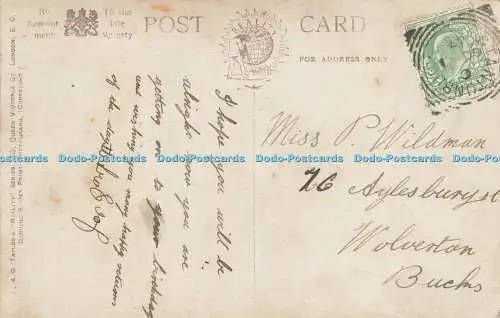 By
Appoint
ment
To Her
late
Majesty
POST CARD
FOR ADDRESS ONLY
A. & G. TAYLOR'S "REALITY" SERIES
QUEEN VICTORIA ST. LONDON, E.C.
I hope you will be
alright now you are
getting on to your birthday
and wishing you many happy returns
of the day
Miss P. Wildman
76 Aylesbury st
Wolverton
Bucks
Dodo-Postcards Dodo-Postcards Dodo-Postcards Dodo-Postcards Dodo-Postcards